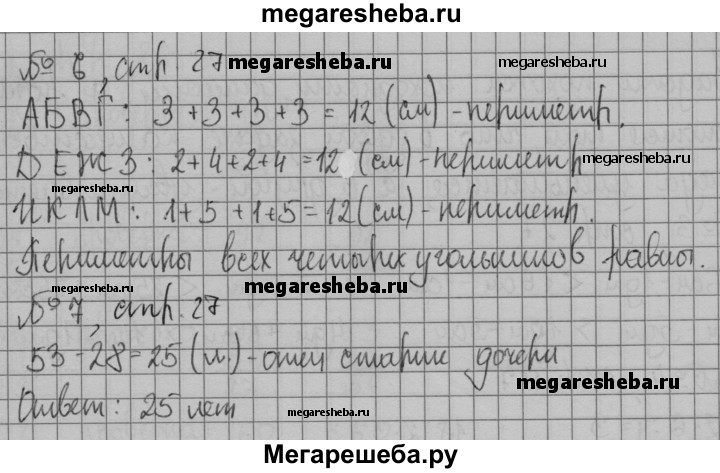 megaresheba.ru
№ 6, стр. 27 megaresheba.ru megaresheba.ru
АБВГ: 3 + 3 + 3 + 3 = 12 (см) - периметр.
ДЕЖЗ: 2 + 4 + 2 + 4 = 12 (см) - периметр megaresheba.ru
megaresheba.ru
ИКЛМ: 1 + 5 + 1 + 5 = 12 (см) - периметр.
Периметры всех четырехугольников равны.
megaresheba.ru megaresheba.ru
№ 7, стр. 27
53 - 28 = 25 (л.) - отец старше дочери
megaresheba.ru
Ответ: 25 лет megaresheba.ru
Мегарешеба.ру